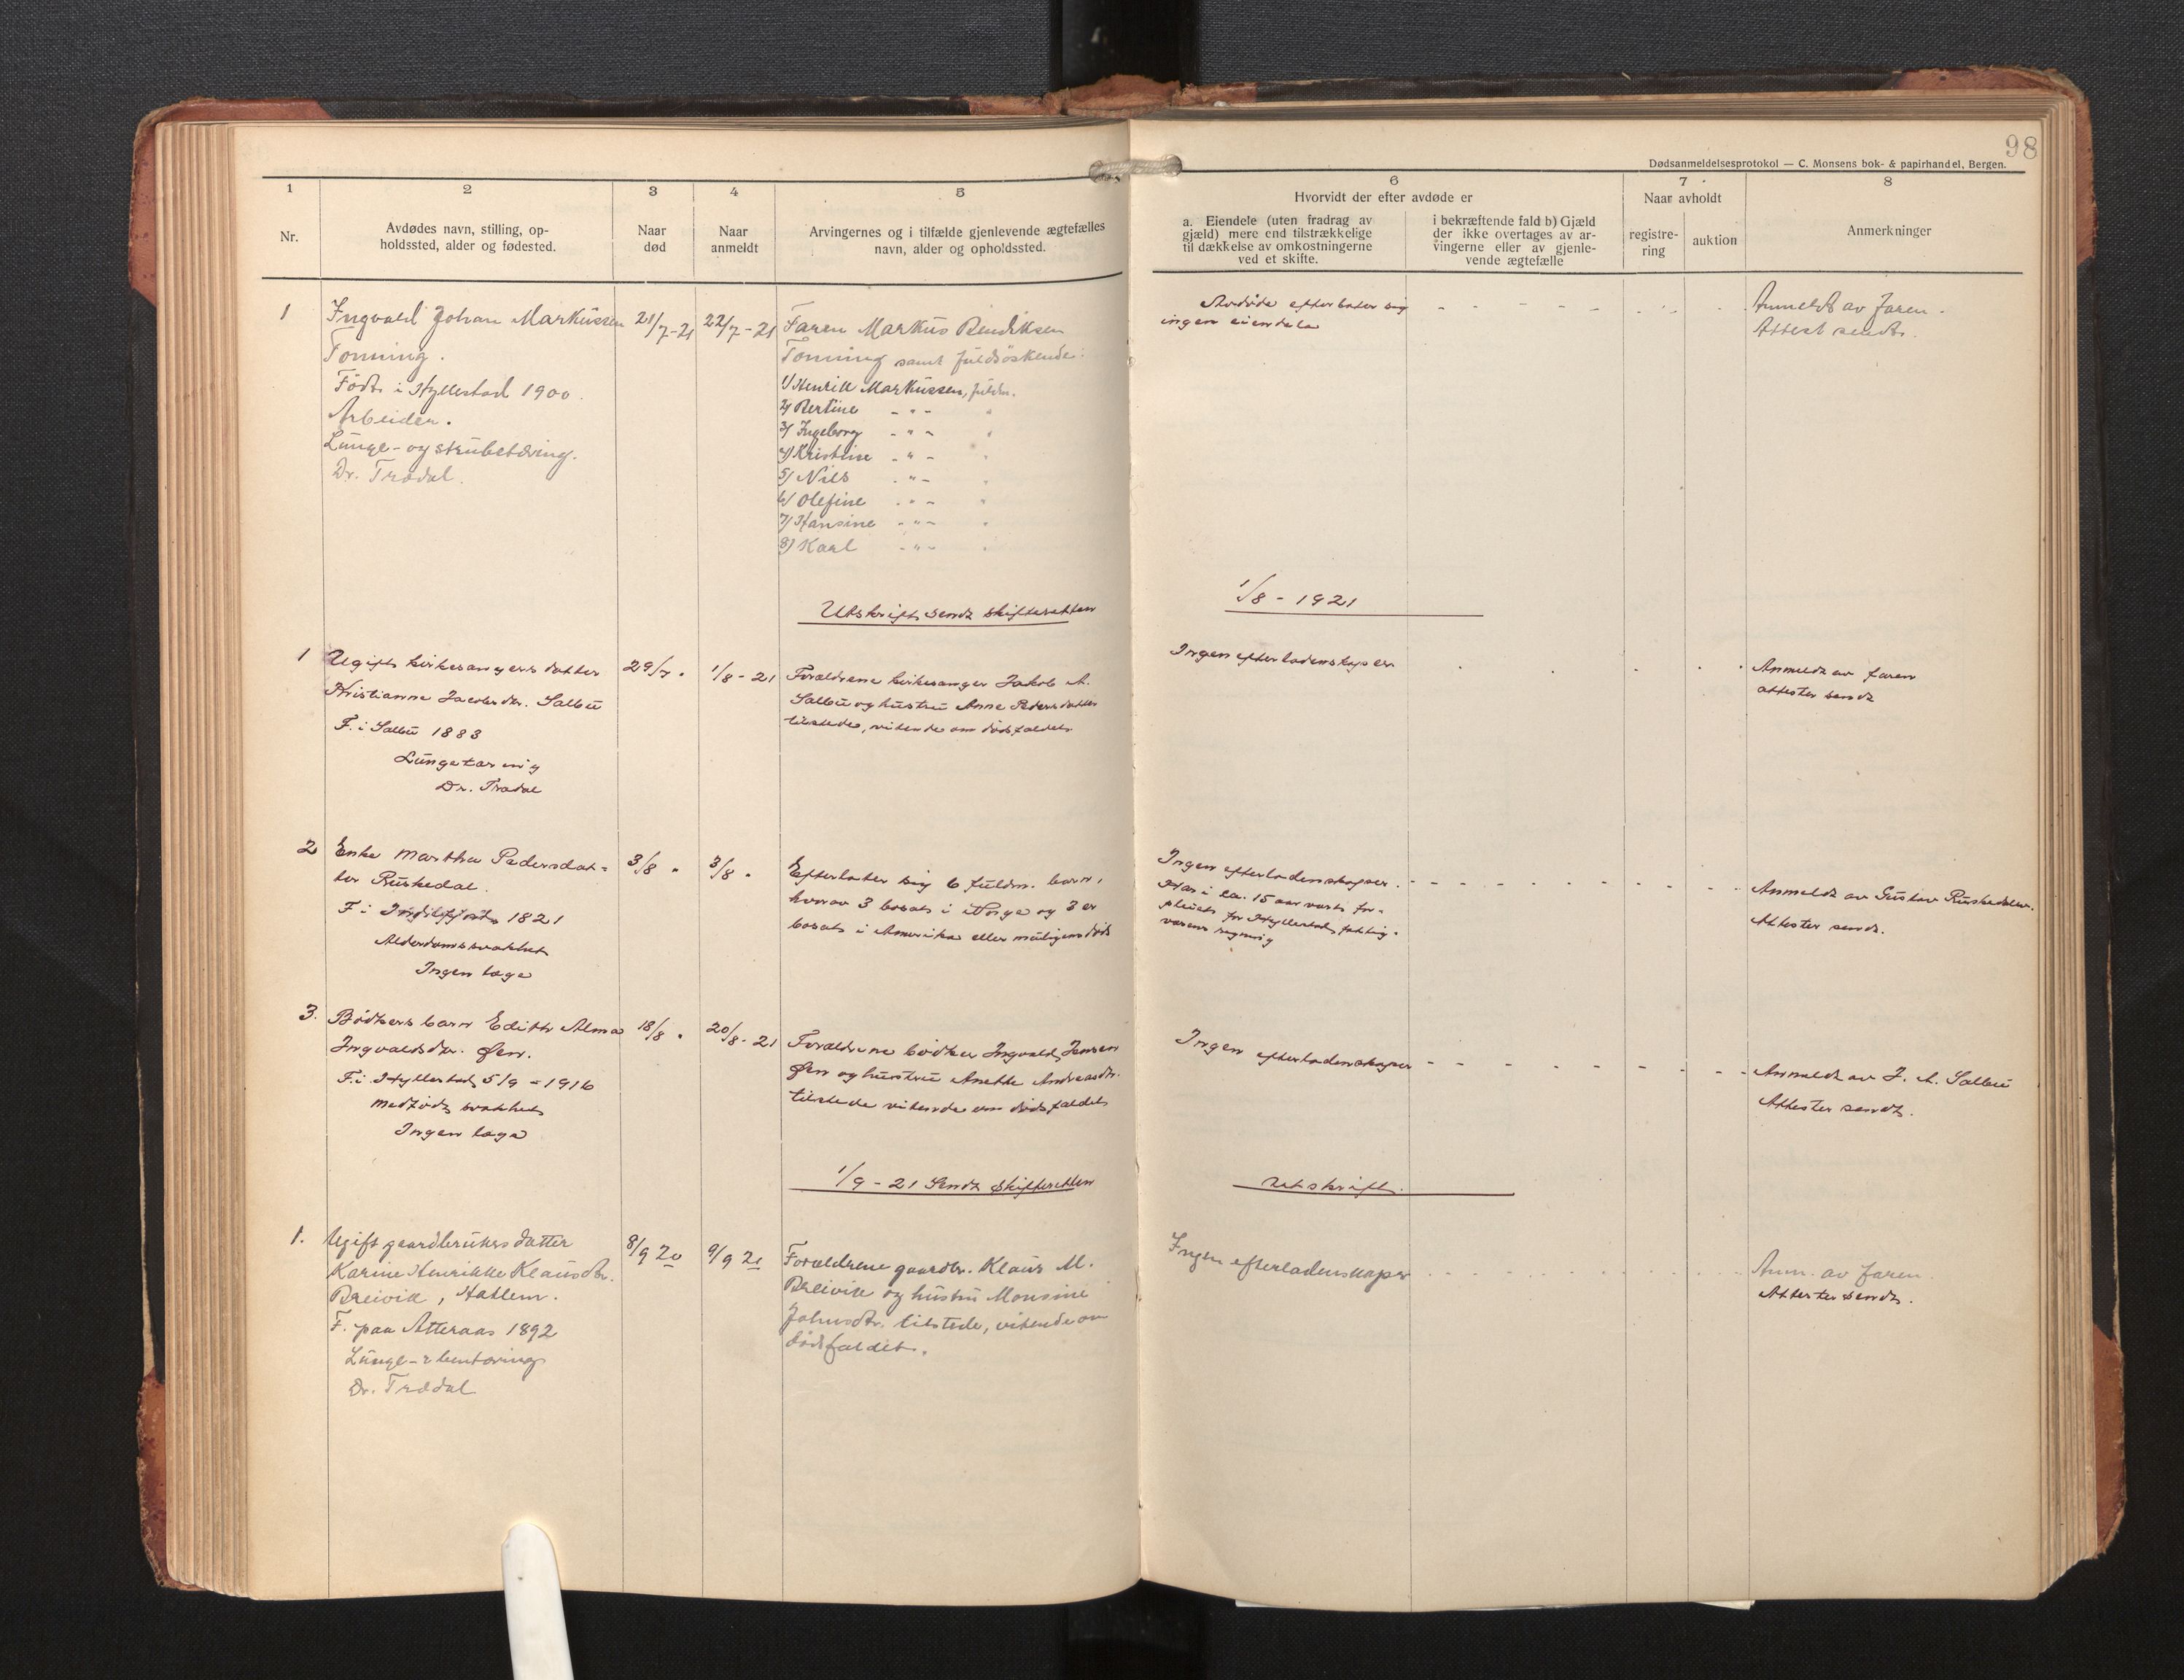 98
Dødsanmeldelsesprotokol — C. Monsens bok- & papirhandel, Bergen.
1
2
3
4
5
6
7
8
Nr.
Avdødes navn, stilling, op-
holdssted, alder og fødested.
Naar
død
Naar
anmeldt
Arvingernes og i tilfælde gjenlevende ægtefælles
navn, alder og opholdssted.
Hvorvidt der efter avdøde er
a. Eiendele (uten fradrag av
gjæld) mere end tilstrækkelige
til dækkelse av omkostningerne
ved et skifte.
i bekræftende fald b) Gjæld
der ikke overtages av ar-
vingerne eller av gjenle-
vende ægtefælle
Naar avholdt
registre-
ring
auktion
Anmerkninger
1
Ingvald Johan Markussen
Tonning.
Født i Hyllestad 1900.
Arbeider.
Lunge- og strubetæring.
Dr. Trædal.
21/7-21
22/7-21
Faren Markus Bendiksen
Tonning samt fuldsøskende:
1/ Henrik Markussen, fuldm.
2/ Bertine - " - "
3/ Ingeborg - " - "
4/ Kristine - " - "
5/ Nils - " - "
6/ Olefine - " - "
7/ Hansine - " - "
8/ Karl - " - "
Avdøde efterlater sig
ingen eiendele
Anmeldt av faren.
Attest sendt.
Utskrift sendt skifteretten
1/8 - 1921
1
Ugift kirkesangers datter
Kristianne Jacobsdtr. Salbu
F. i Salbu 1883
Lungetæring
Dr. Trædal
29/7 "
1/8 - 21
Forældrene kirkesanger Jakob A.
Salbu og hustru Anne Pedersdatter
tilstede, vitende om dødsfaldet
Ingen efterladenskaper
Anmeldt av faren
attester sendt
2
Enke Martha Pedersdat-
ter Ruskedal.
F i 1821
Alderdomssvakhet
Ingen læge
3/8 "
3/8 "
Efterlater sig 6 fuldm. barn,
hvorav 3 bosat i Norge og 3 er
bosat i Amerika eller muligens død
Ingen efterladenskaper.
Har i ca. 15 aar vært for-
pleiet for Hyllestad fattig-
væsens regning
Anmeldt av Gustav Ruskedalen.
Attester sendt.
3.
Bødkers barn Edith Alma
Ingvaldsdtr. Øen.
F. i Hyllestad 5/9 - 1916
Medfødt svakhet
Ingen læge
18/8 "
20/8 - 21
Forældrene bødker Ingvald Jensen
Øen og hustru Anette Andreasdtr.
tilstede vitende om dødsfaldet
Ingen efterladenskaper
Anmeldt av J. A. Salbu
Attester sendt.
1/9 - 21 Sendt skifteretten
utskrift.
1.
Ugift gaardbrukers datter
Karine Henrikke Klausdtr.
Breivik, Hatlem.
F. paa Atteraas 1892
Lunge- & bentæring
Dr. Trædal
8/9 20
9/9 21
Forældrene gaardbr. Klaus M.
Breivik og hustru Monsine
Johnsdtr. tilstede, vitende om
dødsfaldet.
Ingen efterladenskaper
Anm. av faren.
Attester sendt.